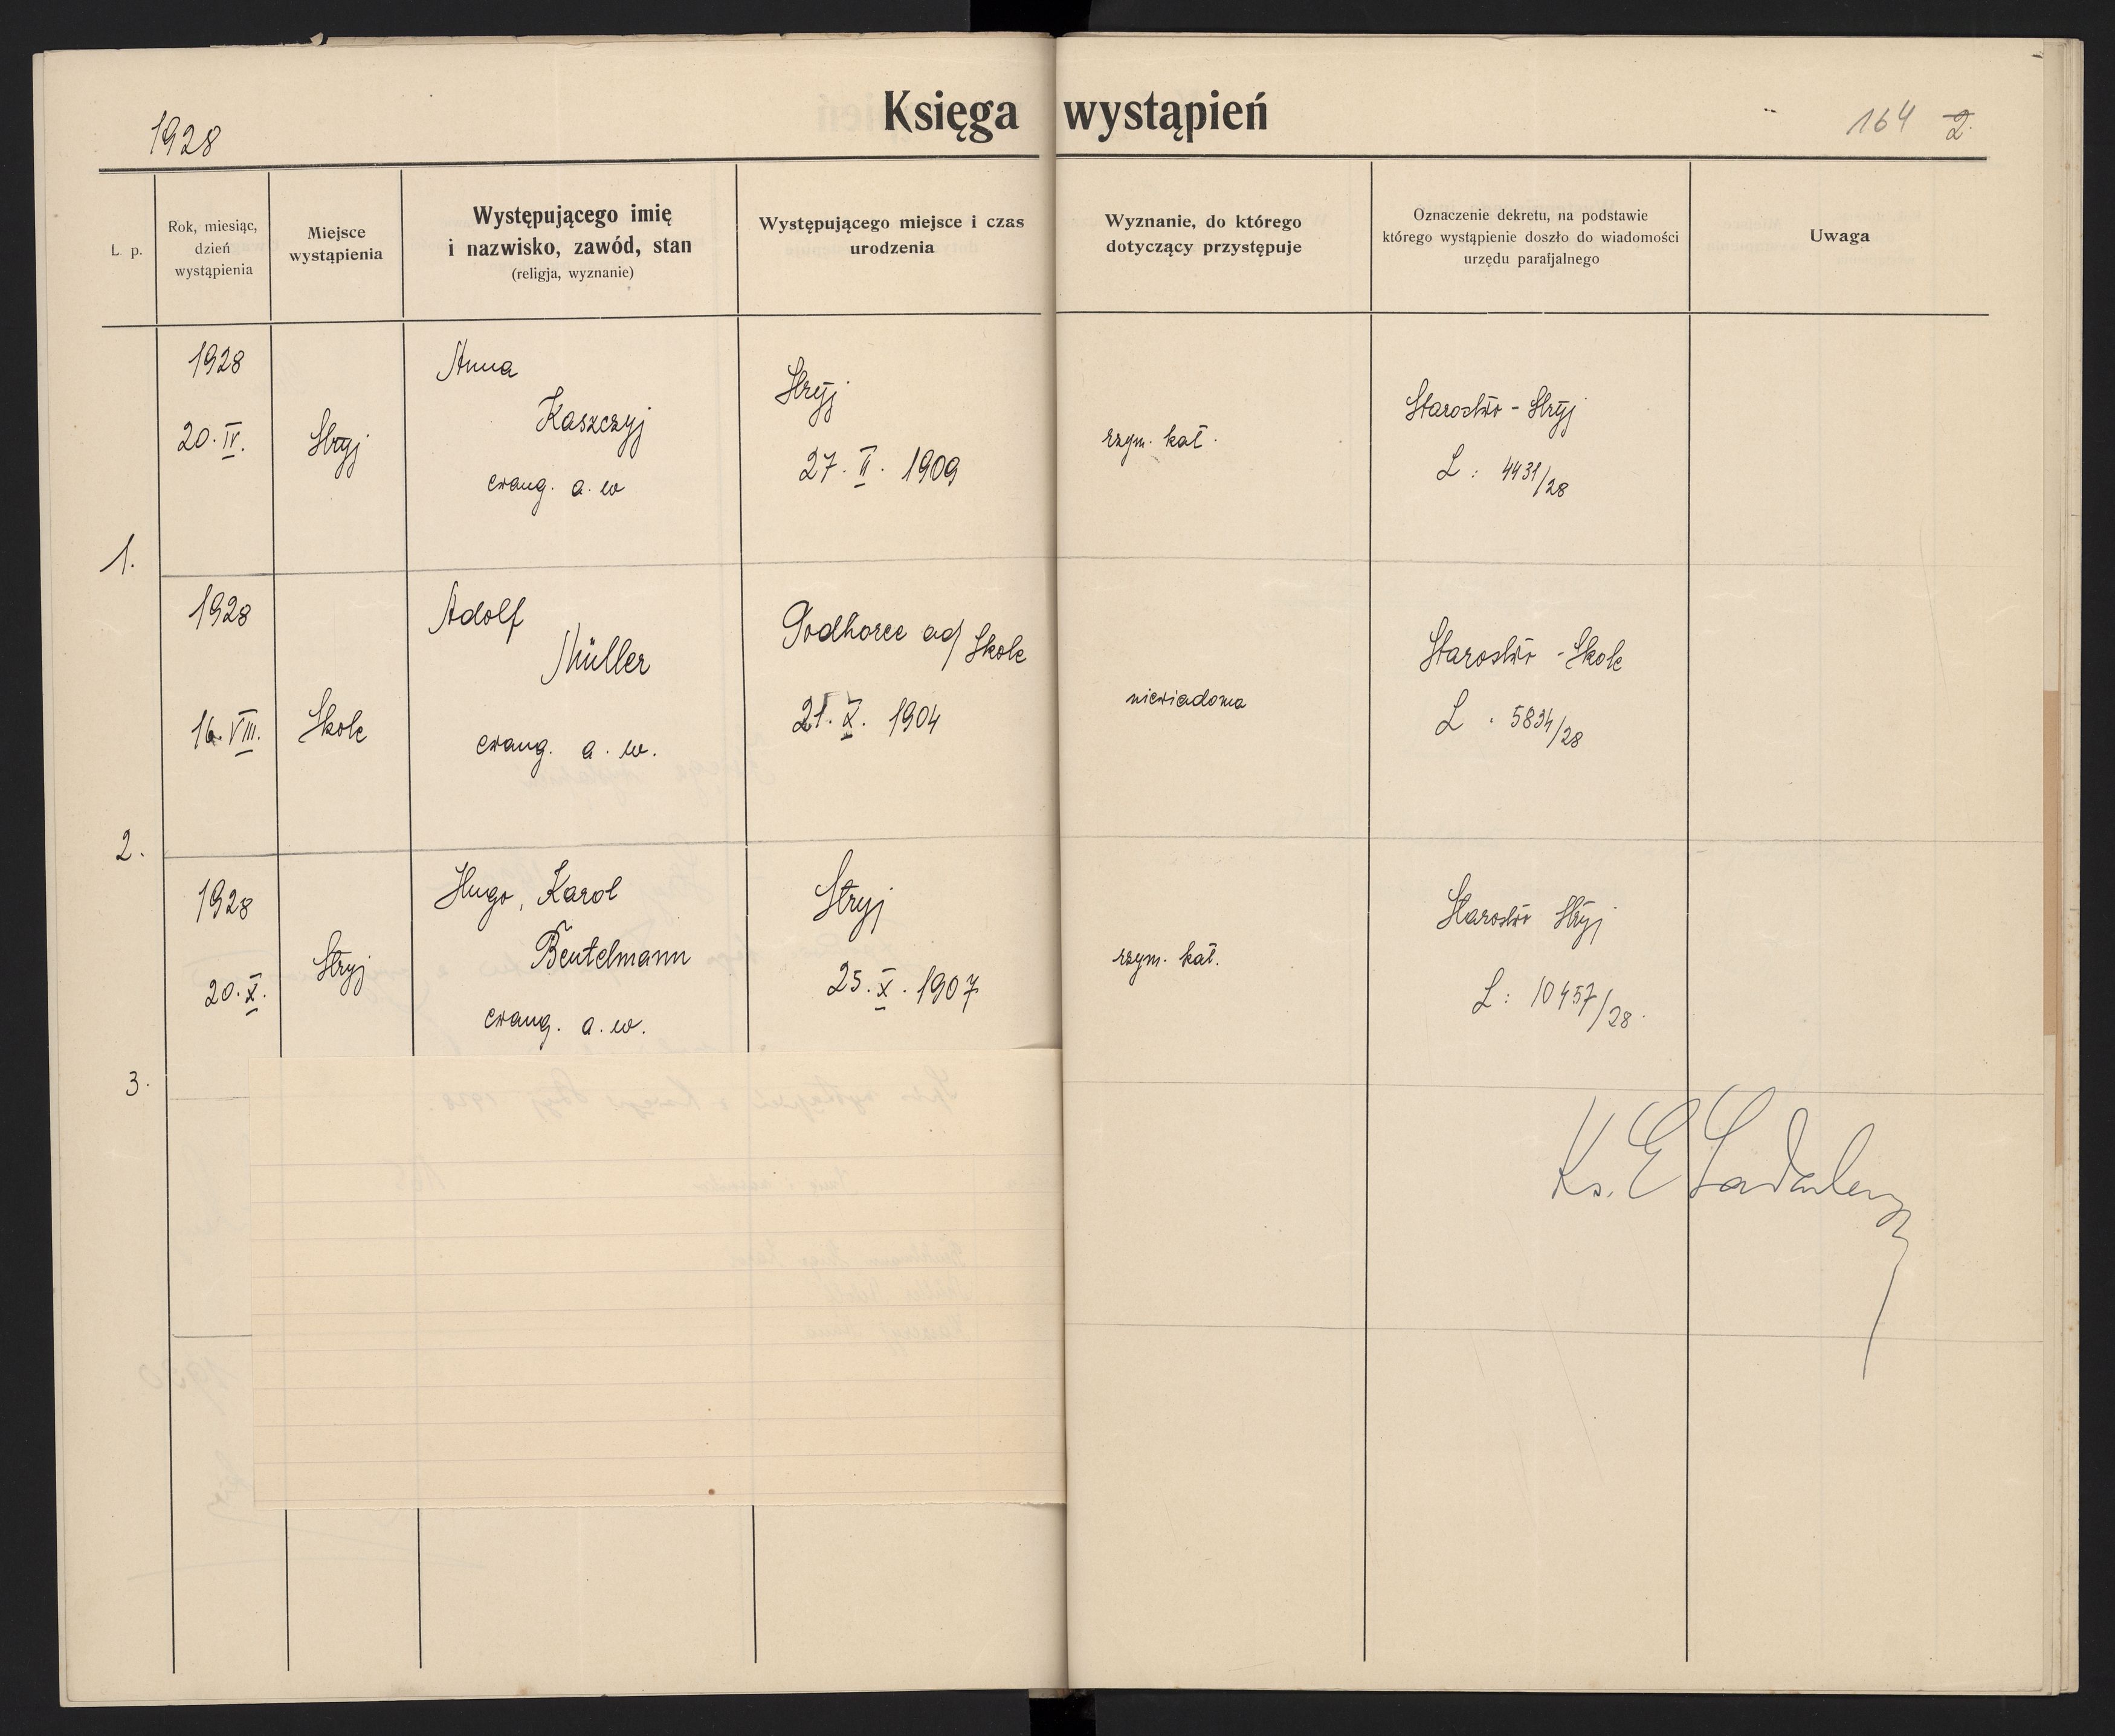 Księga wystąpień
1928
164 2.
L. p.
Rok, miesiąc,
dzień
wystąpienia
Miejsce
wystąpienia
Występującego imię
i nazwisko, zawód, stan
(religja, wyznanie)
Występującego miejsce i czas
urodzenia
Wyznanie, do którego
dotyczący przystępuje
Oznaczenie dekretu, na podstawie
którego wystąpienie doszło do wiadomości
urzędu parafjalnego
Uwaga
1.
1928
20. IV.
Stryj
Anna
Kaszczyj
ewang. a. w
Stryj
27. II. 1909
rzym. kat.
Starostwo - Stryj
L : 4431/28
2.
1928
16. VIII.
Skole
Adolf
Müller
ewang. a. w.
Podhorce ad/ Skole
21. X. 1904
niewiadoma
Starostwo - Skole
L . 5834/28
3.
1928
20. X.
Stryj
Hugo, Karol
Beutelmann
ewang. a. w.
Stryj
25. X. 1907
rzym. kat.
Starostwo Stryj
L : 10457/28.
Ks. E